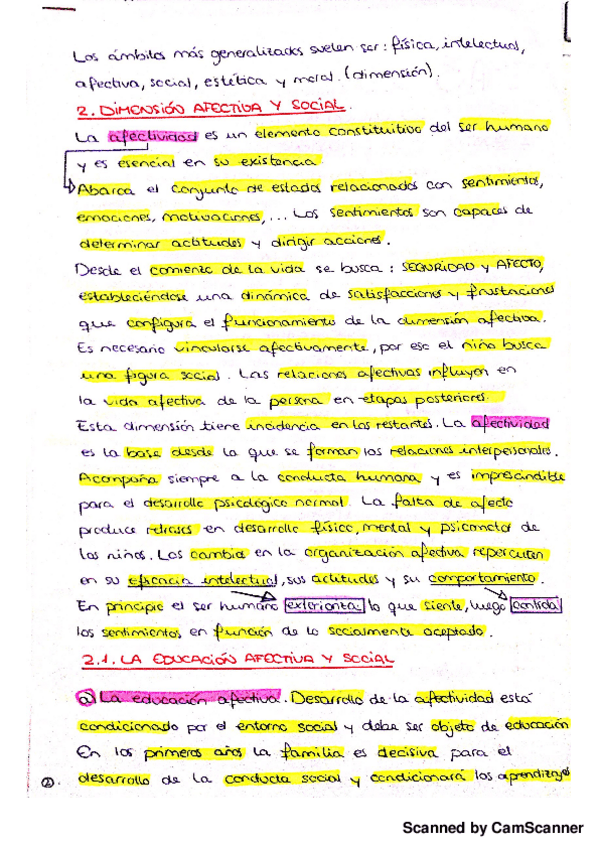 Los ámbitos más generalizados suelen ser: física, intelectual,
afectiva, social, estética y moral. (dimensión).
2. DIMENSIÓN AFECTIVA Y SOCIAL.
La afectividad es un elemento constituitivo del ser humano
y es esencial en su existencia
Abarca el conjunto de estados relacionados con sentimientos,
emociones, motivaciones,... Los sentimientos son capaces de
determinar actitudes y dirigir acciones.
Desde el comienzo de la vida se busca: SEGURIDAD y AFECTO,
estableciéndose una dinámica de satisfacciones y frustaciones
que configura el funcionamiento de la dimensión afectiva.
Es necesario vincularse afectivamente, por eso el niño busca
una figura social. Las relaciones afectivas influyen en
la vida afectiva de la persona en etapas posteriores.
Esta dimensión tiene incidencia en las restantes. La afectividad
es la base desde la que se forman las relaciones interpersonales.
Acompaña siempre a la conducta humana y es imprescindible
para el desarrollo psicológico normal. La falta de afecto
produce retrasos en desarrollo físico, mental y psicomotor de
los niños. Los cambios en la organización afectiva repercuten
en su eficacia intelectual, sus actitudes y su comportamiento.
En principio el ser humano exterioriza lo que siente, luego controla
los sentimientos en función de lo socialmente aceptado.
2.1. LA EDUCACIÓN AFECTIVA Y SOCIAL
a) La educación afectiva. Desarrollo de la afectividad está
condicionado por el entorno social y debe ser objeto de educación
En los primeros años la familia es decisiva para el
desarrollo de la conducta social y condicionará los aprendizajes
2.
Scanned by CamScanner